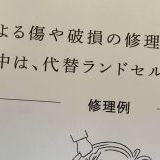 よる傷や破損の修理
中は、代替ランドセル
修理例